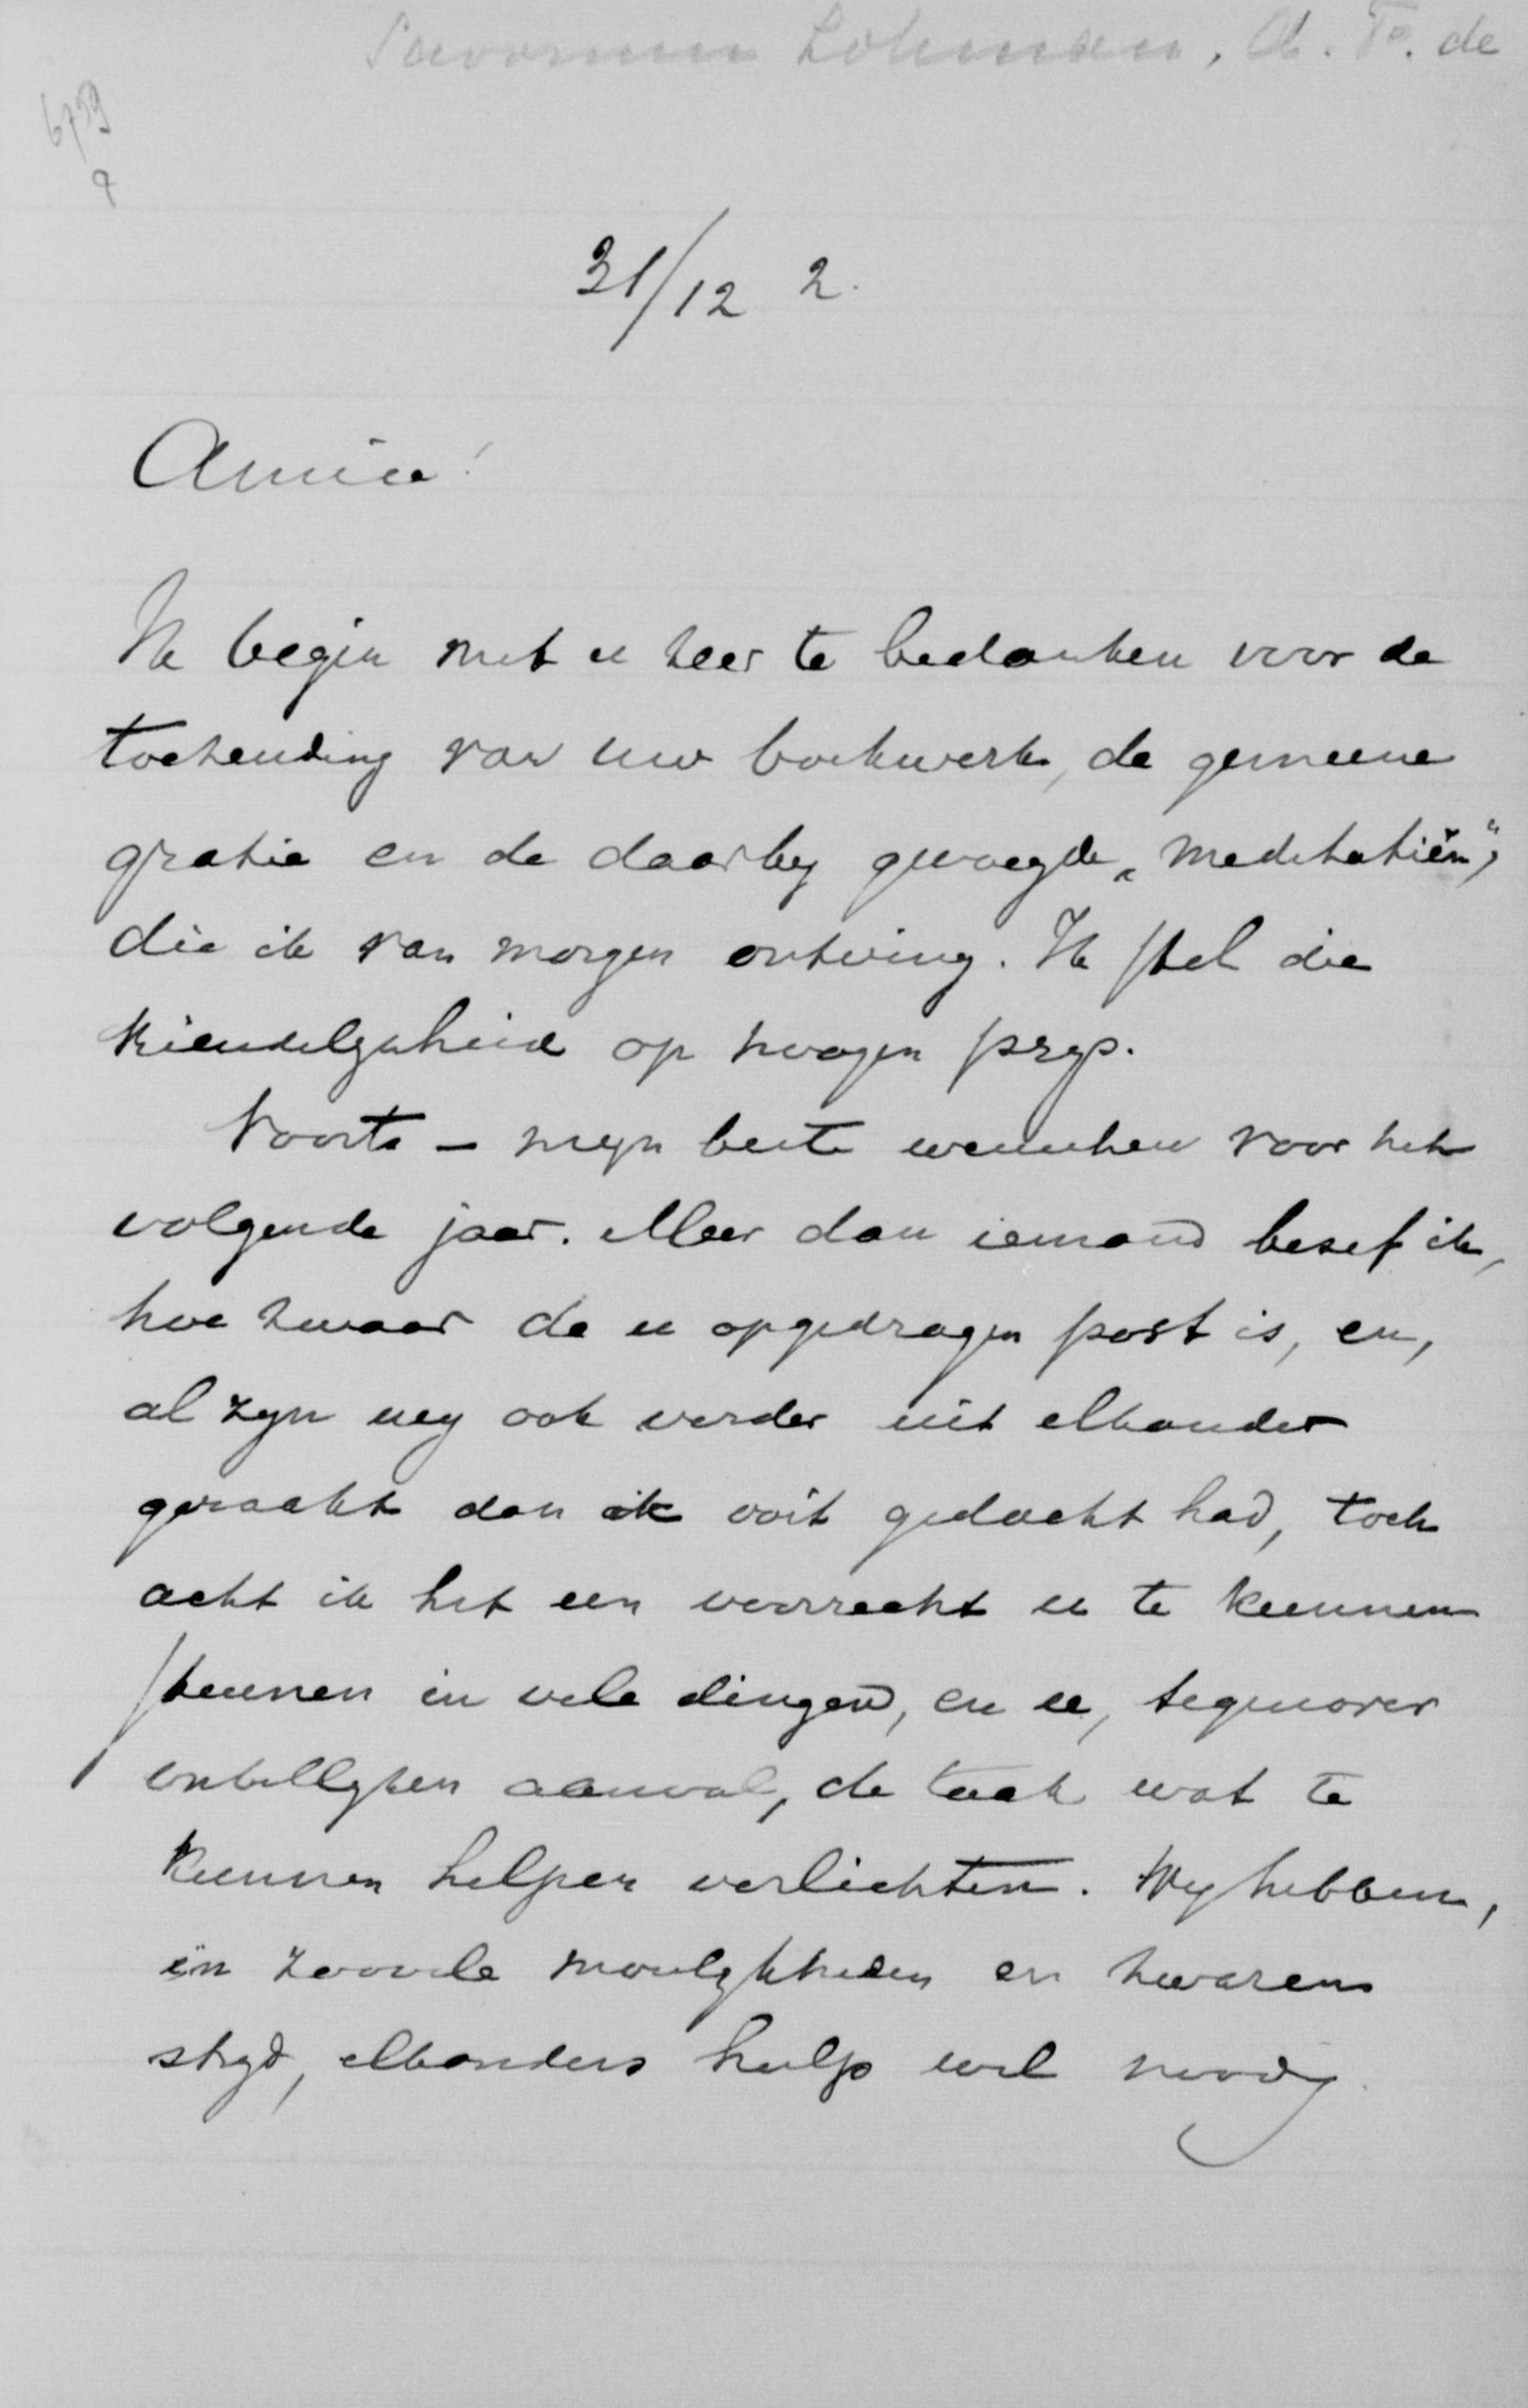 Savornin Lohman, A. F. de
6759
a
31/12 2.
Amice!
Ik begin met u zeer te bedanken voor de
toezending van uw boekwerk, de gemeene
gratie en de daarby gevoegde „Meditatiën",
die ik van morgen ontving. Ik stel die
vriendelykheid op hoogen prys.
Voorts – myn beste wenschen voor het
volgende jaar. Meer dan iemand besef ik,
hoe zwaar de u opgedragen post is, en,
al zyn wy ook verder uit elkander
geraakt dan ik ooit gedacht had, toch
acht ik het een voorrecht u te kunnen
steunen in vele dingen, en u, tegenover
onbillyken aanval, de taak wat te
kunnen helpen verlichten. Wy hebben,
in zoovele moeilykheden en zwaren
stryd, elkanders hulp wel noodig.